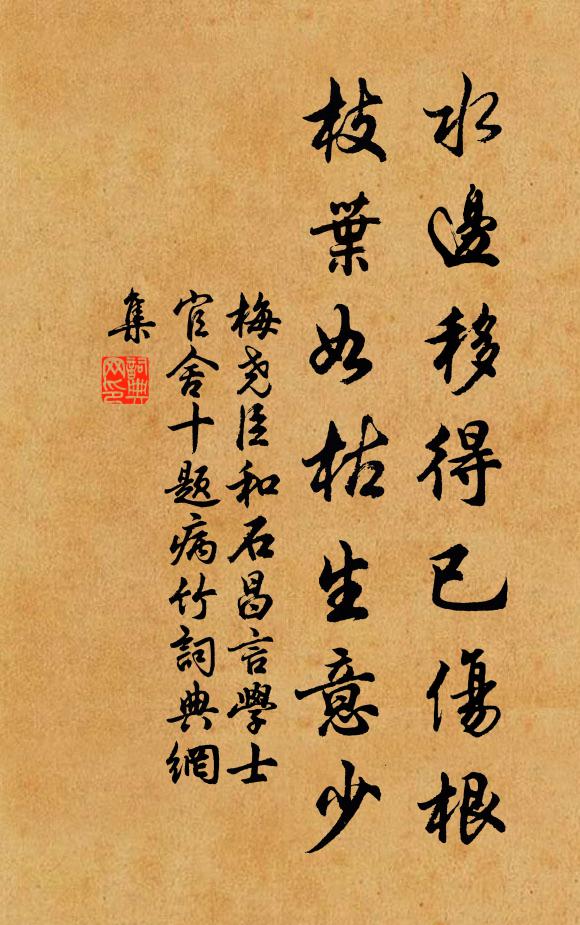 水邊移得已傷根
枝葉如枯生意少
梅堯臣和石昌言學士
官舍十題病竹詞典網
集
詞典
网印